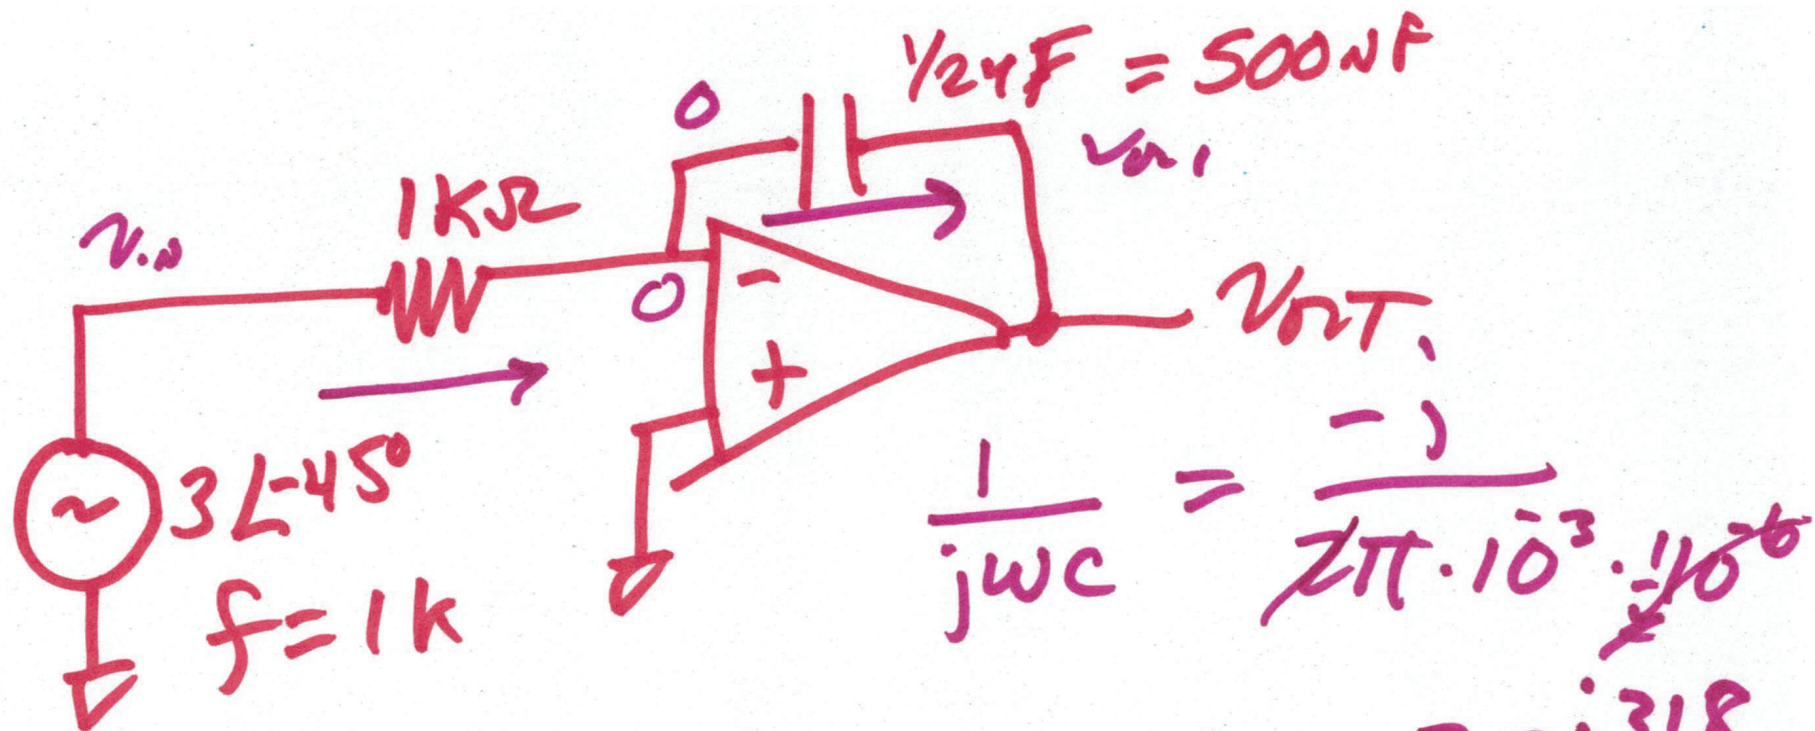 ½µF = 500NF
0
Vout
1KΩ
Vin
0
-
+
VOUT
3∠-45°
f=1K
1/jωc = -j/2π·10⁻³·½10⁻⁶
= -j318